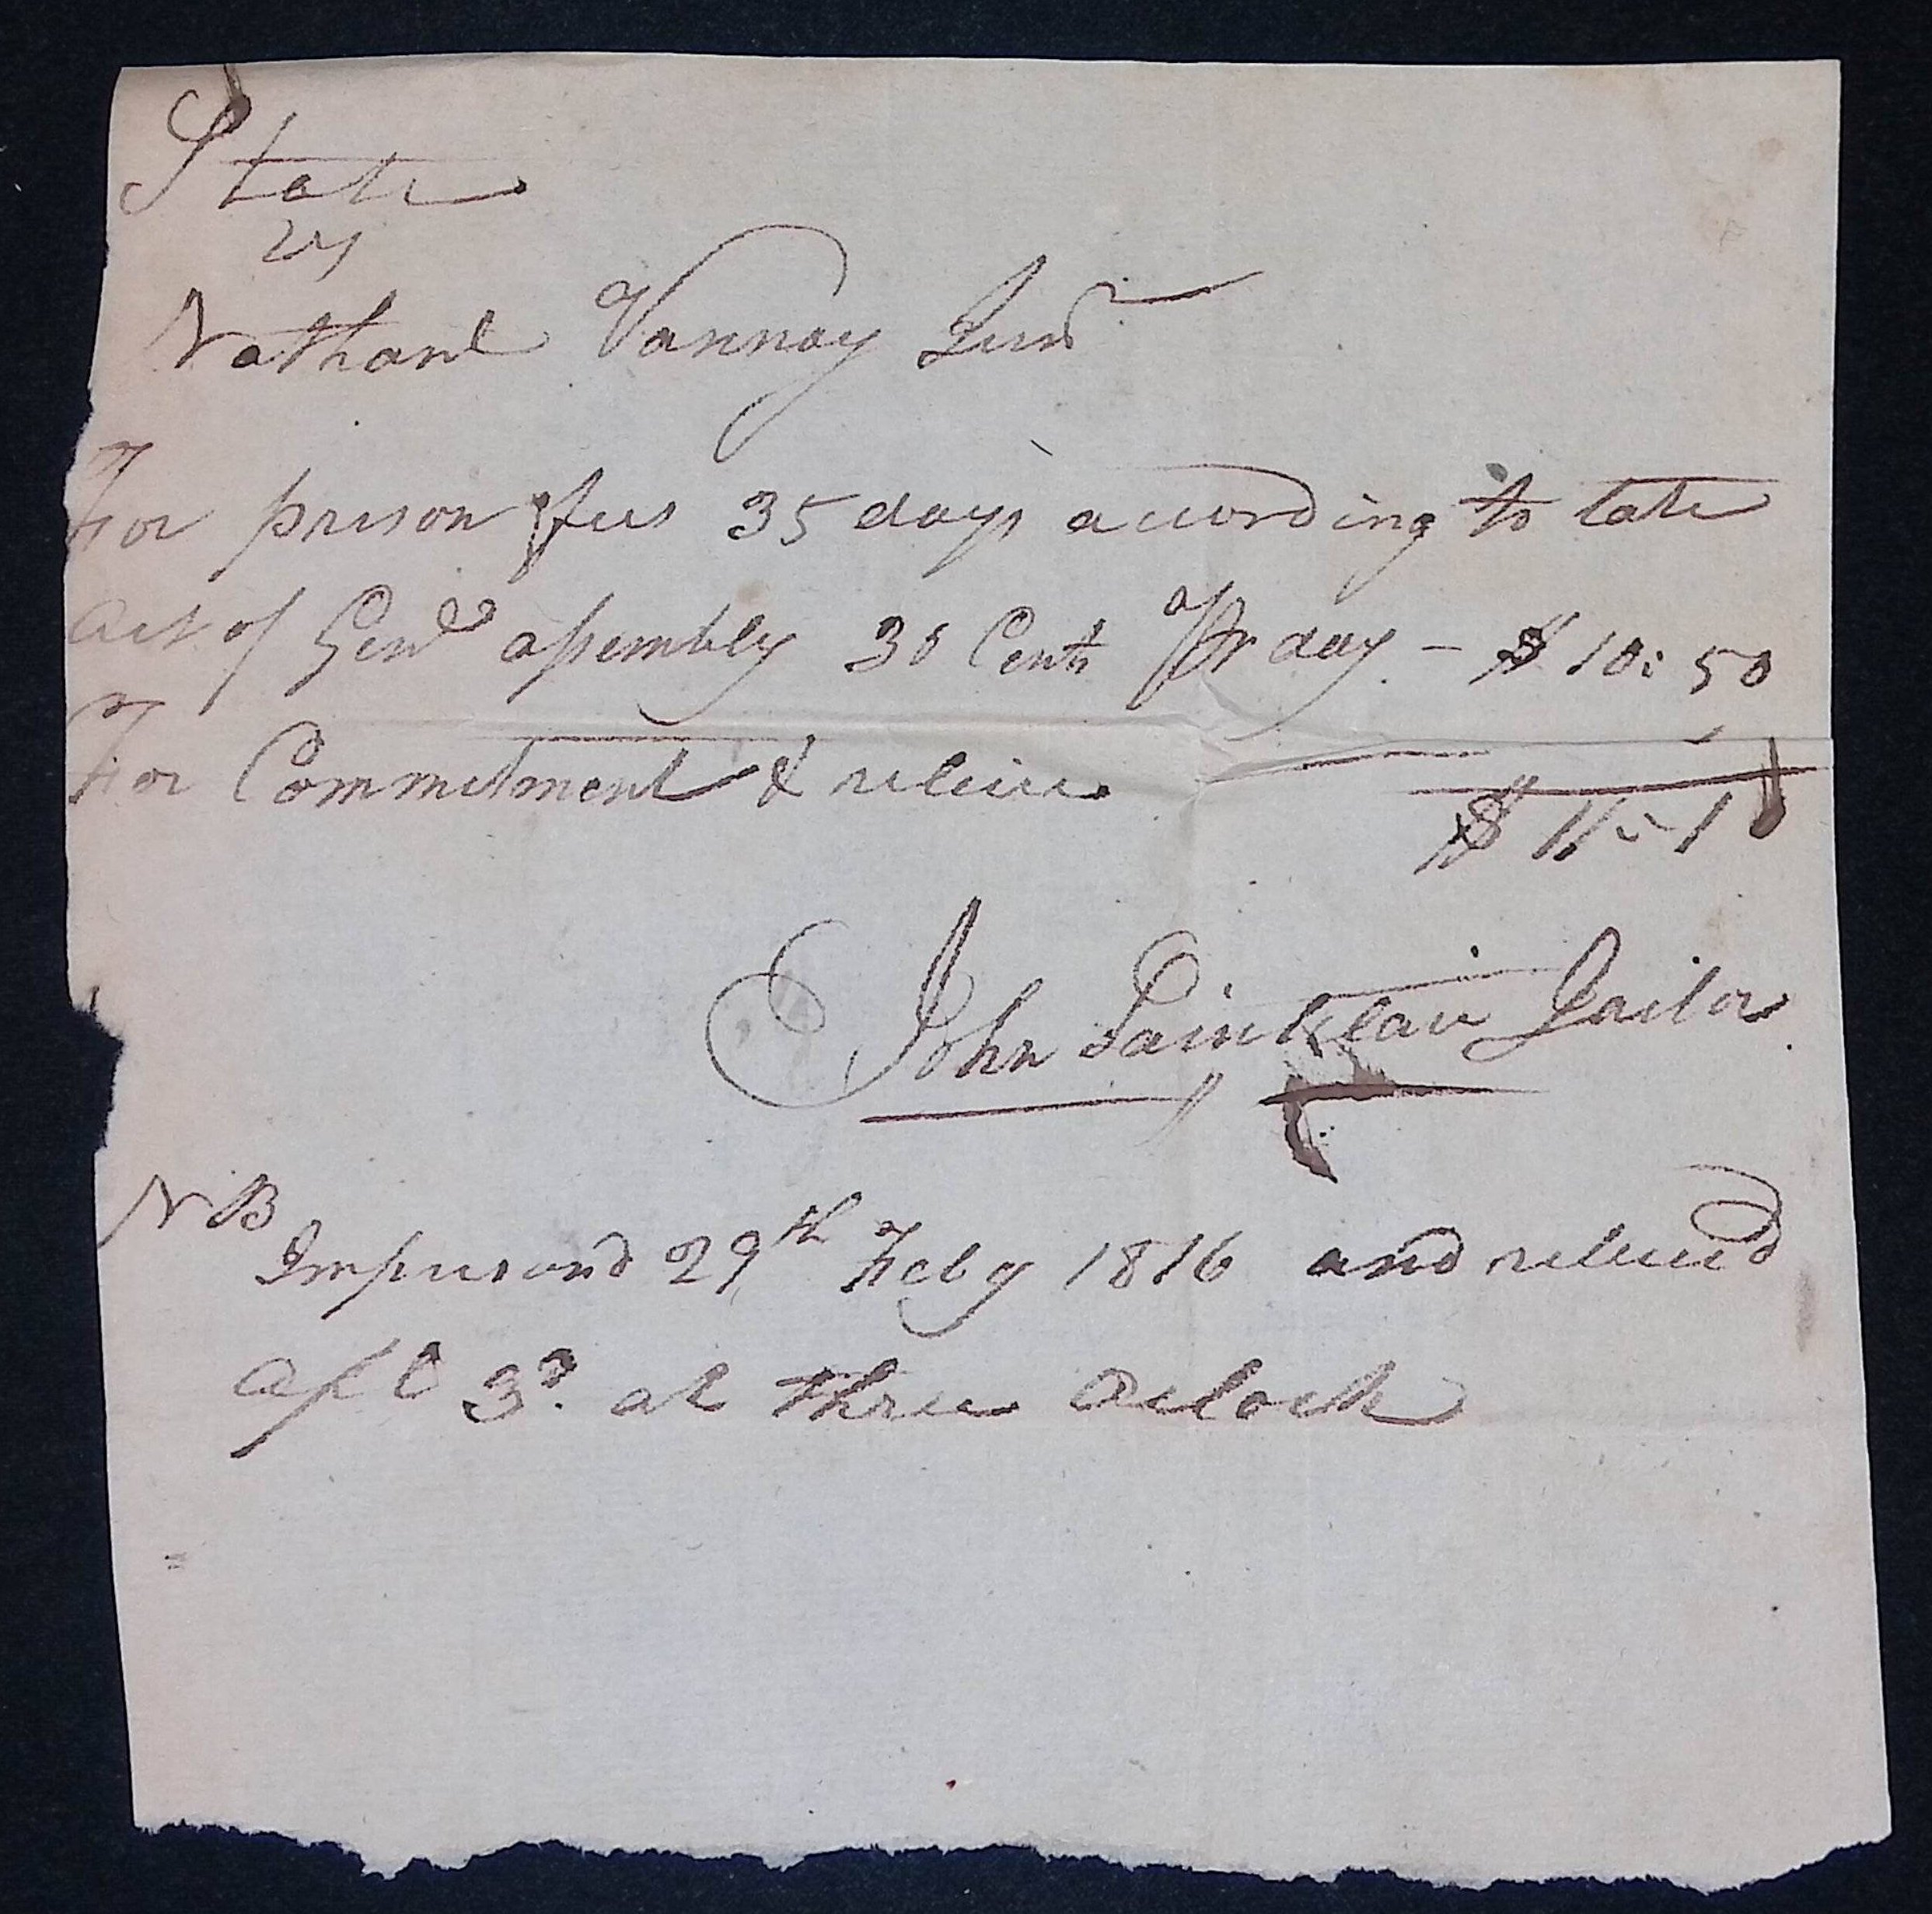 State
vs
Nathanl Vannoy Junr
For prison fees 35 days according to late
act of Genl assembly 30 Cents Pr day - $ 10: 50
For Commitment & releice
$ 11 - 10
John Saintclair Jailor
NB
Imprisond 29th Feby 1816 and releicd
Apl 3d. at three Oclock